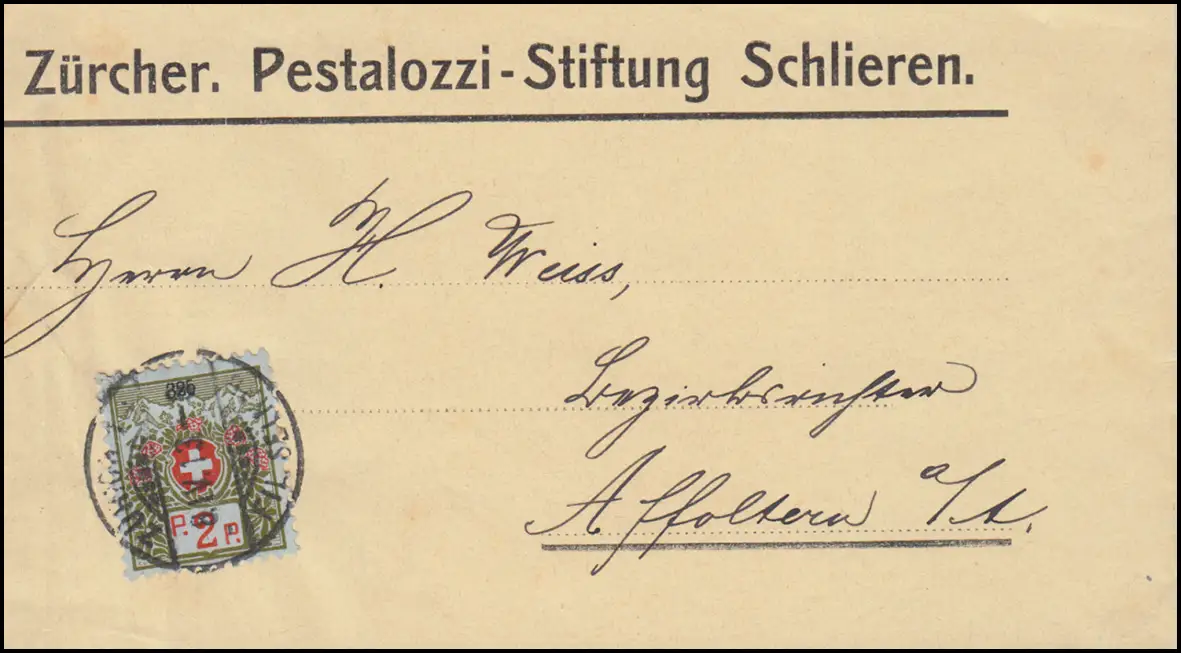 Zürcher. Pestalozzi-Stiftung Schlieren.
Herrn H. Weiss,
Bezirksrichter
Affoltern a/A.
P. 2 P.